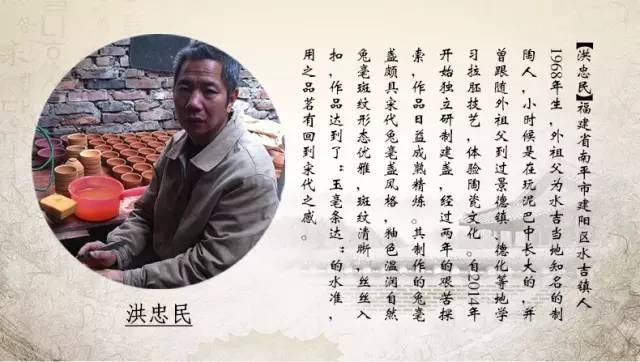 【洪忠民】福建省南平市建阳区水吉镇人
1968年生，外祖父为水吉当地知名的制
陶人，小时候是在玩泥巴中长大的，并
曾跟随外祖父到过景德镇、德化等地学
习拉胚技艺，体验陶瓷文化。自2014年
开始独立研制建盏，经过两年的艰苦探
索，作品日益成熟精炼。其制作的兔毫
盏颇具宋代兔毫盏风格，釉色温润自然
兔毫斑纹形态优雅，斑纹清晰，丝丝入
扣，作品达到了：玉毫条达：的水准，
用之品茗有回到宋代之感。
洪忠民